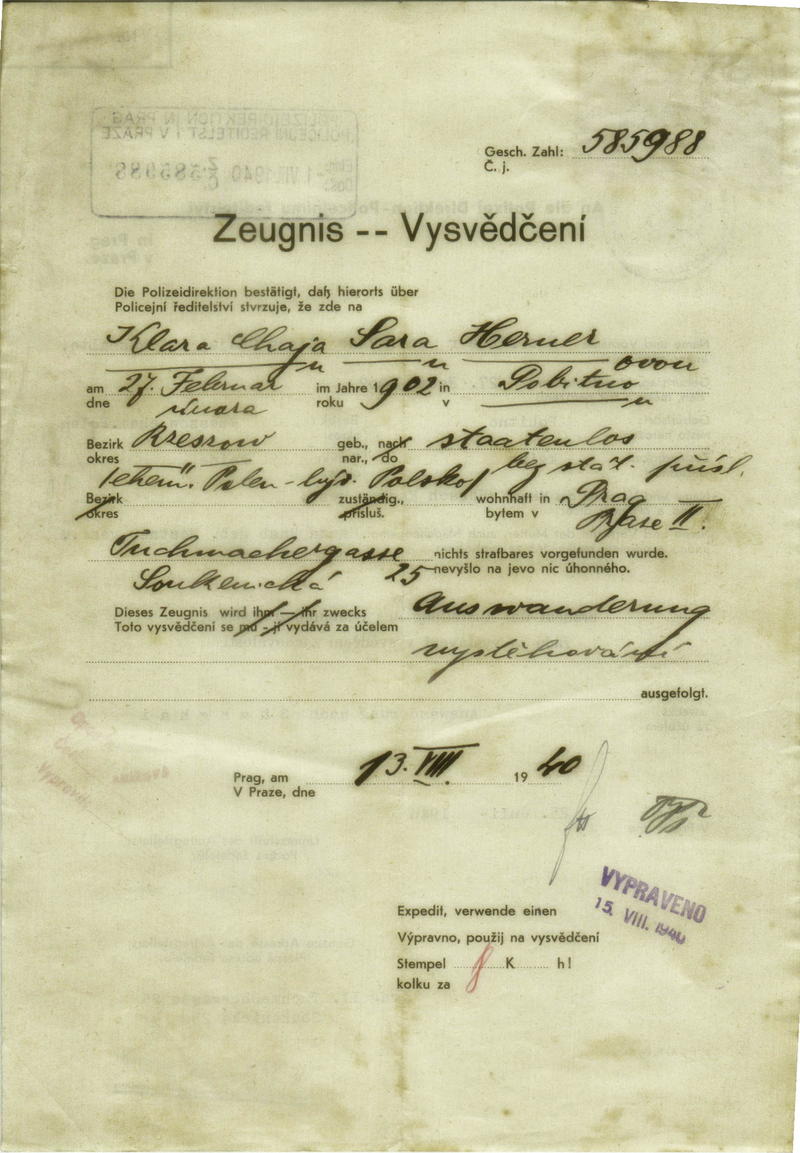 Gesch. Zahl: 585988
Č. j.
Zeugnis -- Vysvědčení
Die Polizeidirektion bestätigt, daß hierorts über
Policejní ředitelství stvrzuje, že zde na
Klara Chaja Sara Herner
ovou
am 27. Februar im Jahre 1902 in Pobitno
dne února roku v
Bezirk Rzeszow geb., nach staatenlos
okres nar., do bez stát. přísl.
Polen - Polsko
Bezirk zuständig., wohnhaft in Prag
okres přísluš. bytem v Praze II.
Tuchmachergasse nichts strafbares vorgefunden wurde.
Soukenická 25 nevyšlo na jevo nic úhonného.
Dieses Zeugnis wird ihm — ihr zwecks Auswanderung
Toto vysvědčení se mu - jí vydává za účelem
vystěhování
ausgefolgt.
Prag, am 13. VIII. 1940
V Praze, dne
VYPRAVENO
15. VIII. 1940
Expedit, verwende einen
Výpravno, použij na vysvědčení
Stempel 8 K h!
kolku za